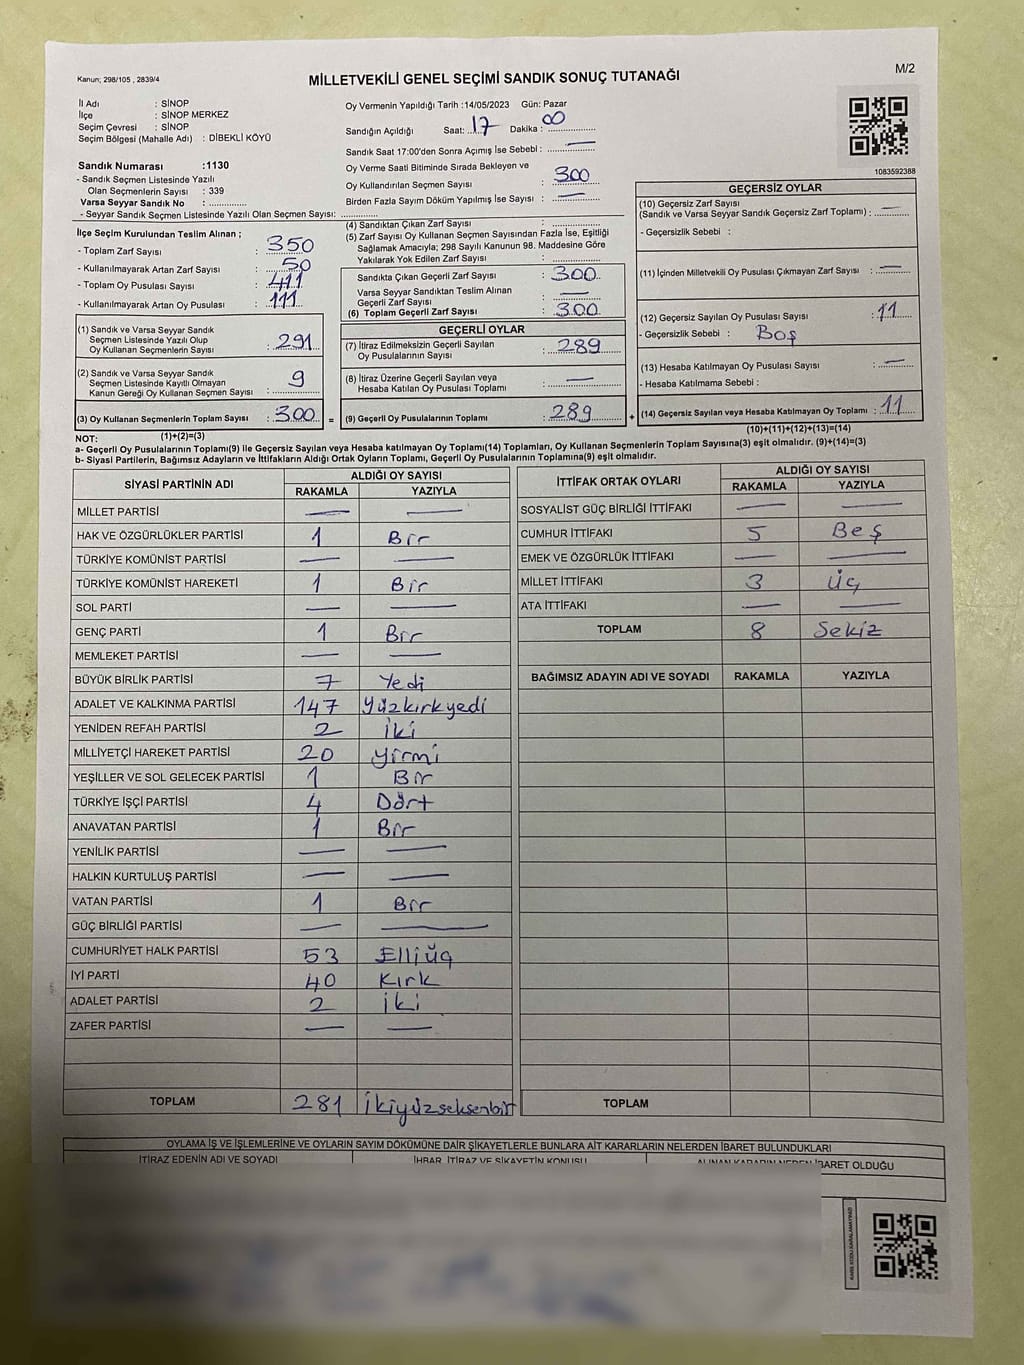 Kanun; 298/105 , 2839/4
MİLLETVEKİLİ GENEL SEÇİMİ SANDIK SONUÇ TUTANAĞI
M/2
İl Adı : SİNOP
İlçe : SİNOP MERKEZ
Seçim Çevresi : SİNOP
Seçim Bölgesi (Mahalle Adı) : DİBEKLİ KÖYÜ
Sandık Numarası :1130
- Sandık Seçmen Listesinde Yazılı
Olan Seçmenlerin Sayısı : 339
Varsa Seyyar Sandık No :
- Seyyar Sandık Seçmen Listesinde Yazılı Olan Seçmen Sayısı:
Oy Vermenin Yapıldığı Tarih :14/05/2023 Gün: Pazar
Sandığın Açıldığı Saat: 17 Dakika : 00
Sandık Saat 17:00'den Sonra Açımış İse Sebebi : —
Oy Verme Saati Bitiminde Sırada Bekleyen ve
Oy Kullandırılan Seçmen Sayısı : 300
Birden Fazla Sayım Döküm Yapılmış İse Sayısı : —
1083592388
İlçe Seçim Kurulundan Teslim Alınan ;
- Toplam Zarf Sayısı : 350
- Kullanılmayarak Artan Zarf Sayısı : 50
- Toplam Oy Pusulası Sayısı : 411
- Kullanılmayarak Artan Oy Pusulası : 111
(1) Sandık ve Varsa Seyyar Sandık
Seçmen Listesinde Yazılı Olup
Oy Kullanan Seçmenlerin Sayısı : 291
(2) Sandık ve Varsa Seyyar Sandık
Seçmen Listesinde Kayıtlı Olmayan
Kanun Gereği Oy Kullanan Seçmen Sayısı : 9
(3) Oy Kullanan Seçmenlerin Toplam Sayısı : 300 =
(1)+(2)=(3)
(4) Sandıktan Çıkan Zarf Sayısı :
(5) Zarf Sayısı Oy Kullanan Seçmen Sayısından Fazla İse, Eşitliği
Sağlamak Amacıyla; 298 Sayılı Kanunun 98. Maddesine Göre
Yakılarak Yok Edilen Zarf Sayısı :
Sandıkta Çıkan Geçerli Zarf Sayısı : 300
Varsa Seyyar Sandıktan Teslim Alınan
Geçerli Zarf Sayısı : —
(6) Toplam Geçerli Zarf Sayısı : 300
GEÇERLİ OYLAR
(7) İtiraz Edilmeksizin Geçerli Sayılan
Oy Pusulalarının Sayısı : 289
(8) İtiraz Üzerine Geçerli Sayılan veya
Hesaba Katılan Oy Pusulası Toplamı : —
(9) Geçerli Oy Pusulalarının Toplamı : 289 +
GEÇERSİZ OYLAR
(10) Geçersiz Zarf Sayısı
(Sandık ve Varsa Seyyar Sandık Geçersiz Zarf Toplamı) : —
- Geçersizlik Sebebi :
(11) İçinden Milletvekili Oy Pusulası Çıkmayan Zarf Sayısı : —
(12) Geçersiz Sayılan Oy Pusulası Sayısı : 11
- Geçersizlik Sebebi : Boş
(13) Hesaba Katılmayan Oy Pusulası Sayısı : —
- Hesaba Katılmama Sebebi :
(14) Geçersiz Sayılan veya Hesaba Katılmayan Oy Toplamı : 11
(10)+(11)+(12)+(13)=(14)
NOT:
a- Geçerli Oy Pusulalarının Toplamı(9) ile Geçersiz Sayılan veya Hesaba katılmayan Oy Toplamı(14) Toplamları, Oy Kullanan Seçmenlerin Toplam Sayısına(3) eşit olmalıdır. (9)+(14)=(3)
b- Siyasi Partilerin, Bağımsız Adayların ve İttifakların Aldığı Ortak Oyların Toplamı, Geçerli Oy Pusulalarının Toplamına(9) eşit olmalıdır.
SİYASİ PARTİNİN ADI ALDIĞI OY SAYISI
RAKAMLA YAZIYLA
MİLLET PARTİSİ — —
HAK VE ÖZGÜRLÜKLER PARTİSİ 1 Bir
TÜRKİYE KOMÜNİST PARTİSİ — —
TÜRKİYE KOMÜNİST HAREKETİ 1 Bir
SOL PARTİ — —
GENÇ PARTİ 1 Bir
MEMLEKET PARTİSİ — —
BÜYÜK BİRLİK PARTİSİ 7 Yedi
ADALET VE KALKINMA PARTİSİ 147 Yüzkırkyedi
YENİDEN REFAH PARTİSİ 2 İki
MİLLİYETÇİ HAREKET PARTİSİ 20 Yirmi
YEŞİLLER VE SOL GELECEK PARTİSİ 1 Bir
TÜRKİYE İŞÇİ PARTİSİ 4 Dört
ANAVATAN PARTİSİ 1 Bir
YENİLİK PARTİSİ — —
HALKIN KURTULUŞ PARTİSİ — —
VATAN PARTİSİ 1 Bir
GÜÇ BİRLİĞİ PARTİSİ — —
CUMHURİYET HALK PARTİSİ 53 Elliüç
İYİ PARTİ 40 Kırk
ADALET PARTİSİ 2 İki
ZAFER PARTİSİ — —
TOPLAM 281 İkiyüzseksenbir
İTTİFAK ORTAK OYLARI ALDIĞI OY SAYISI
RAKAMLA YAZIYLA
SOSYALİST GÜÇ BİRLİĞİ İTTİFAKI — —
CUMHUR İTTİFAKI 5 Beş
EMEK VE ÖZGÜRLÜK İTTİFAKI — —
MİLLET İTTİFAKI 3 Üç
ATA İTTİFAKI — —
TOPLAM 8 Sekiz
BAĞIMSIZ ADAYIN ADI VE SOYADI RAKAMLA YAZIYLA
TOPLAM
OYLAMA İŞ VE İŞLEMLERİNE VE OYLARIN SAYIM DÖKÜMÜNE DAİR ŞİKAYETLERLE BUNLARA AİT KARARLARIN NELERDEN İBARET BULUNDUKLARI
İTİRAZ EDENİN ADI VE SOYADI İHBAR, İTİRAZ VE ŞİKAYETİN KONUSU ALINAN KARARIN NEDEN İBARET OLDUĞU